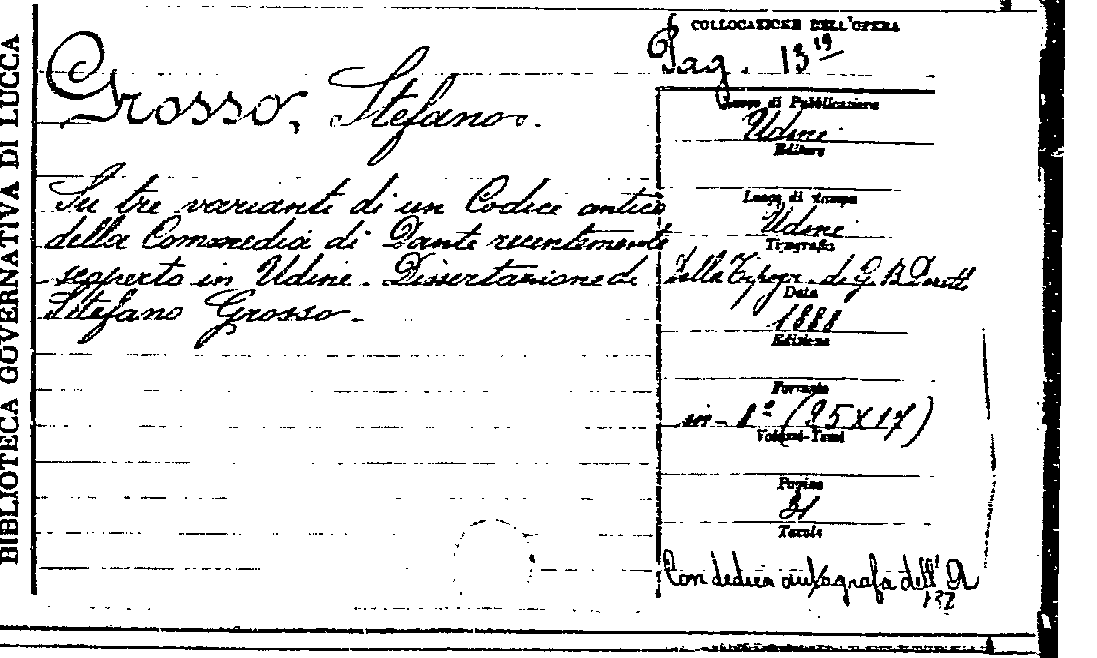 BIBLIOTECA GOVERNATIVA DI LUCCA
Grosso, Stefano.
Su tre varianti di un Codice antico
della Commedia di Dante recentemente
scoperto in Udine. Dissertazione di
Stefano Grosso.
COLLOCAZIONE DELL'OPERA
Pag. 13 19
Luogo di Pubblicazione
Udine
Editore
Luogo di stampa
Udine
Tipografia
Della Tipogr. di G. B. Doretti
Data
1888
Edizione
Formato
in-8º (25x17)
Volumi-Tomi
Pagine
31
Tavole
Con dedica autografa dell'A